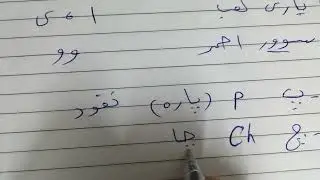 یاری لعب ا ی
سوور احمر وو
پ P (پاره) نقود
چ Ch چا